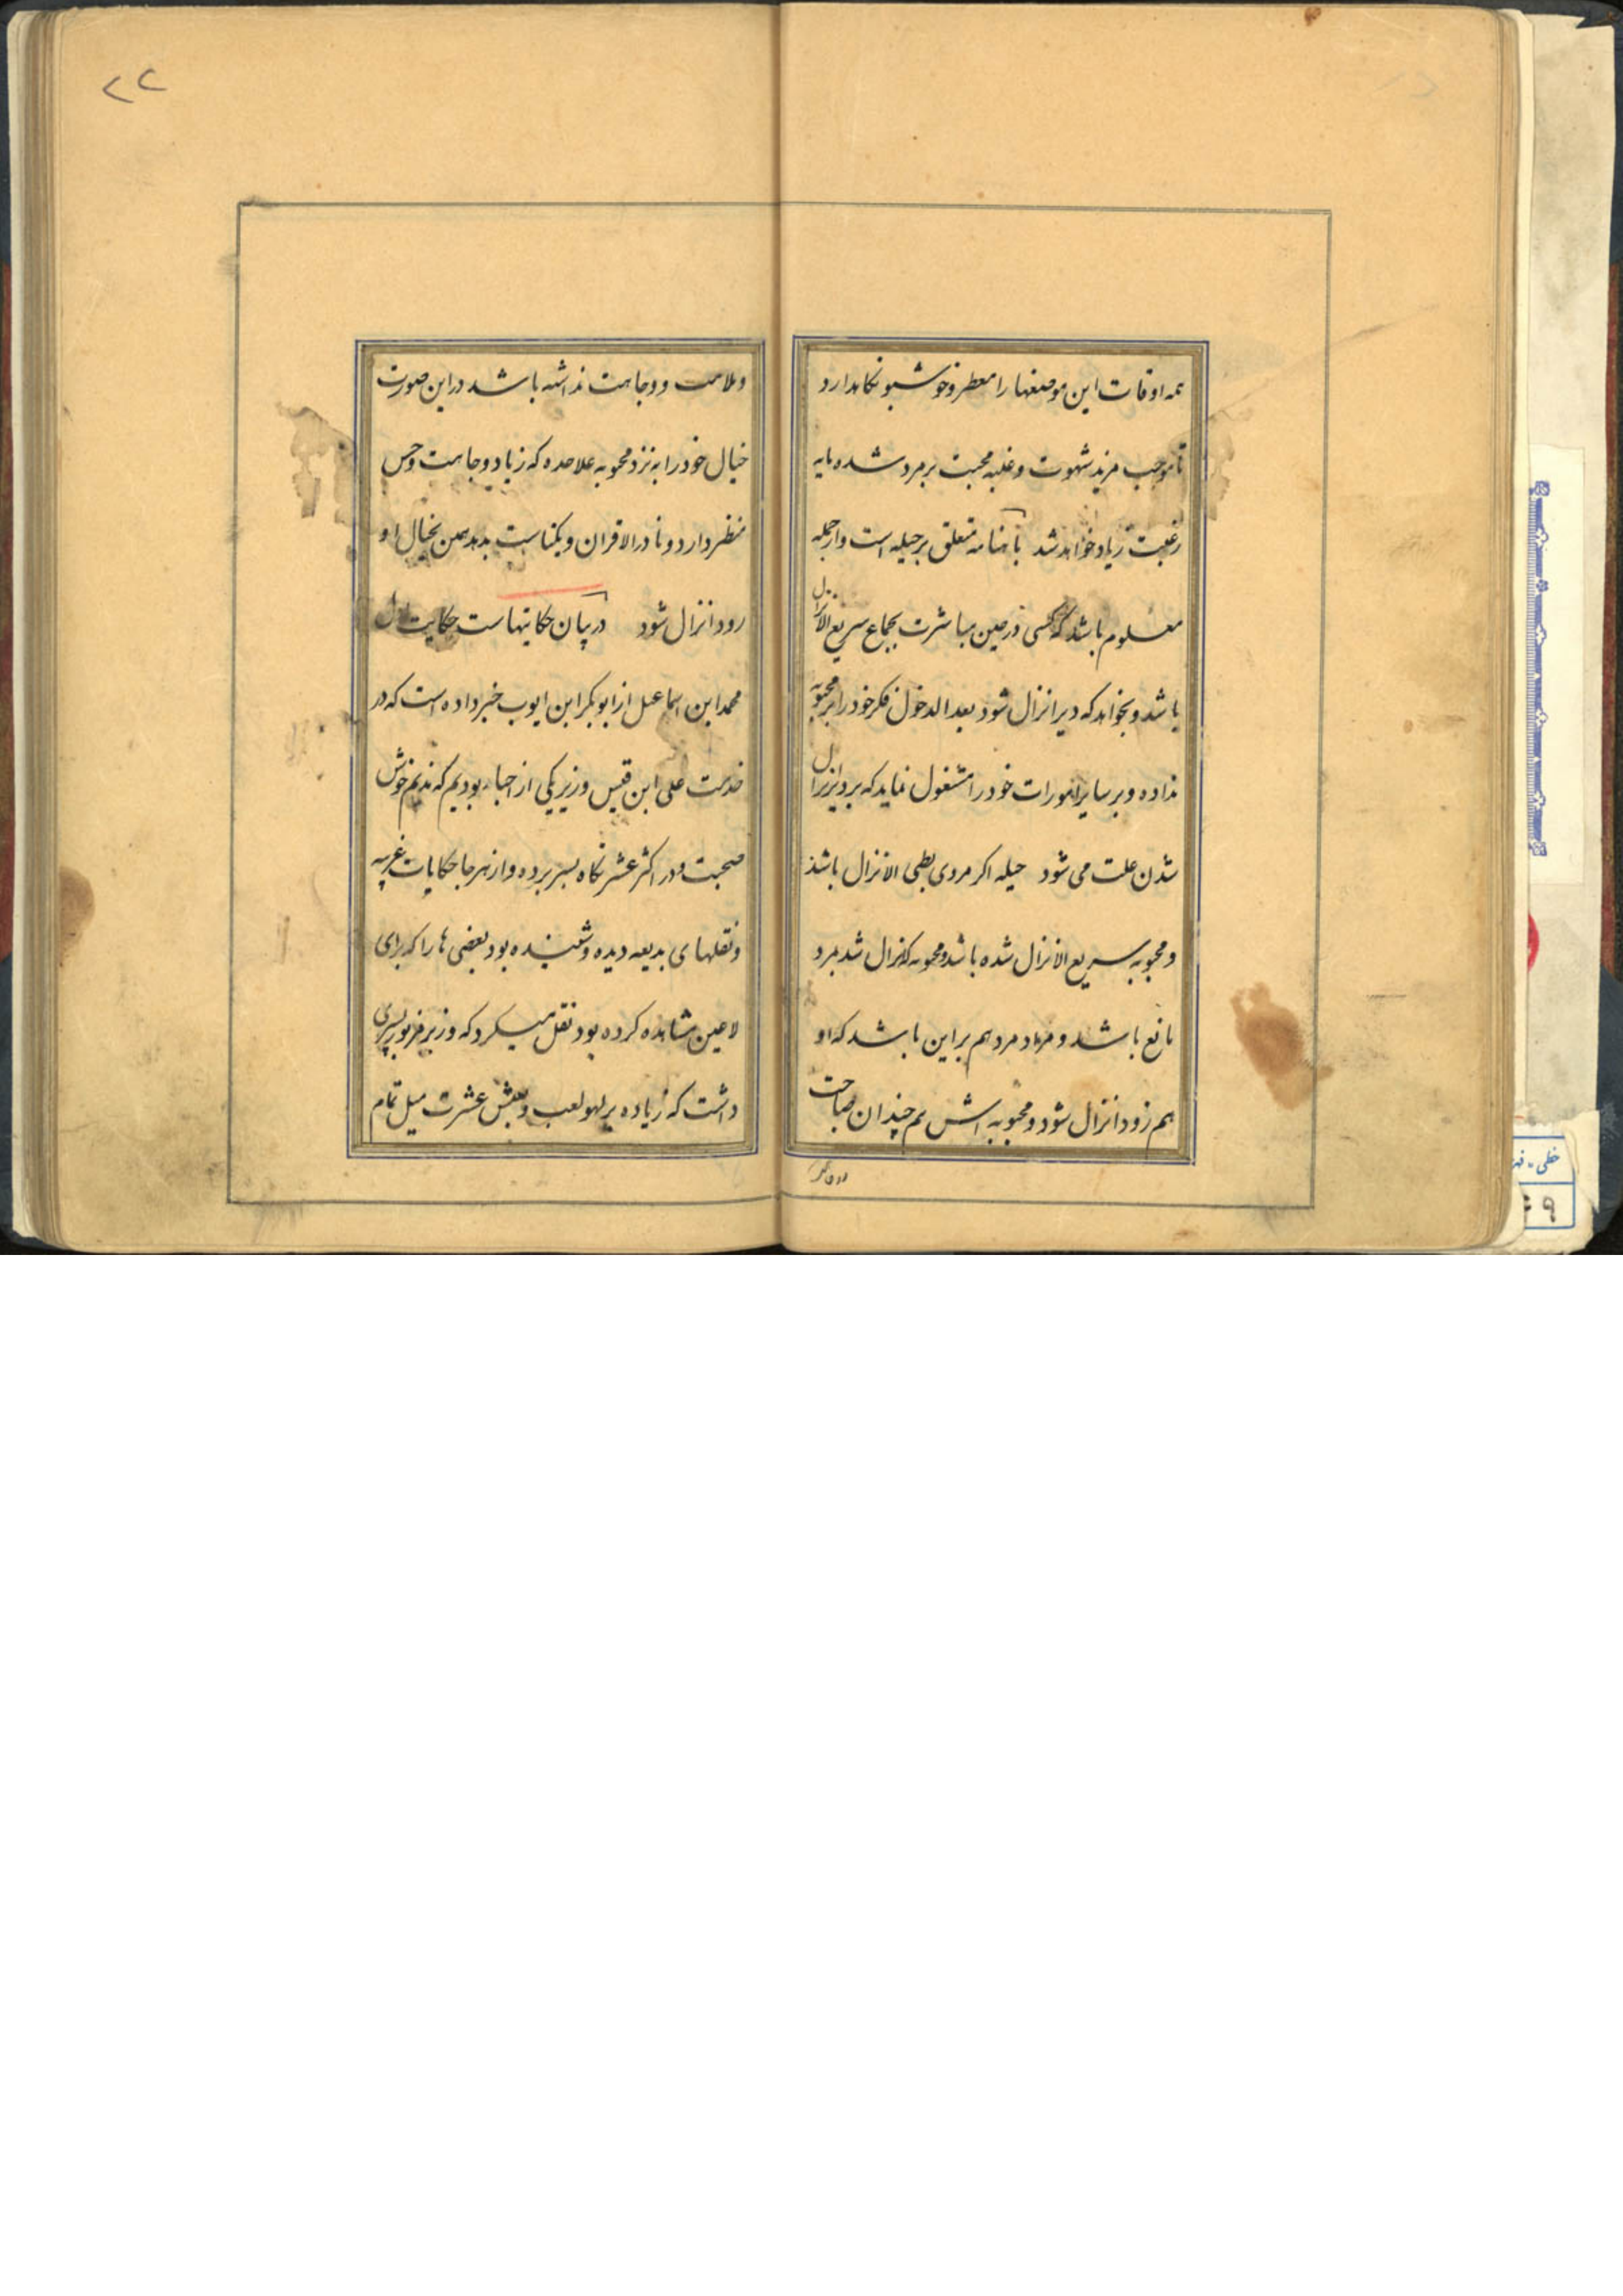 همه اوقات این موضعها را معطر و خوشبو نکاهدارد
تا موجب مزید شهوت و غلبه محبت بر مرد شده مایه
رغبت زیاد خواهد شد متعلق بر حیله است و از جمله
معلوم باشد که کسی در حین مباشرت بجماع سریع الانزال
باشد و بخواهد که دیر انزال شود بعد الدخول فکر خود را بر محبوبه
نداده و بر سایر امورات خود را مشغول نماید که بر دیر انزال
شدن علت می شود حیله اکر مردی بطی الانزال باشد
و محبوبه سریع الانزال شده باشد و محبوبه که انزال شد مرد
مانع باشد و مراد مرد هم بر این باشد که او
هم زود انزال شود و محبوبه اش هم چندان صباحت
و ملاحت و وجاهت نداشته باشد در این صورت
خیال خود را به نزد محبوبه علاحده که زیاد وجاهت و حسن
منظر دارد و نادر الاقران و یکتاست بدهد همین بخیال او
رود انزال شود در بیان حکایتهاست حکایت اول
محمد ابن اسماعیل از ابوبکر ابن ایوب خبر داده است که در
خدمت علی ابن قیس وزیر یکی از احباء بودیم که ندیم خوش
صحبت و در اکثر عشرتکاه بسر برده و از هر جا حکایات غریبه
و نقلهای بدیعه دیده و شنیده بود بعضی ها را که برای
لاعین مشاهده کرده بود نقل میکرد که وزیر مزبور پسری
داشت که زیاده بر لهو لعب و بعیش عشرت میل تمام
۲۲
خطی